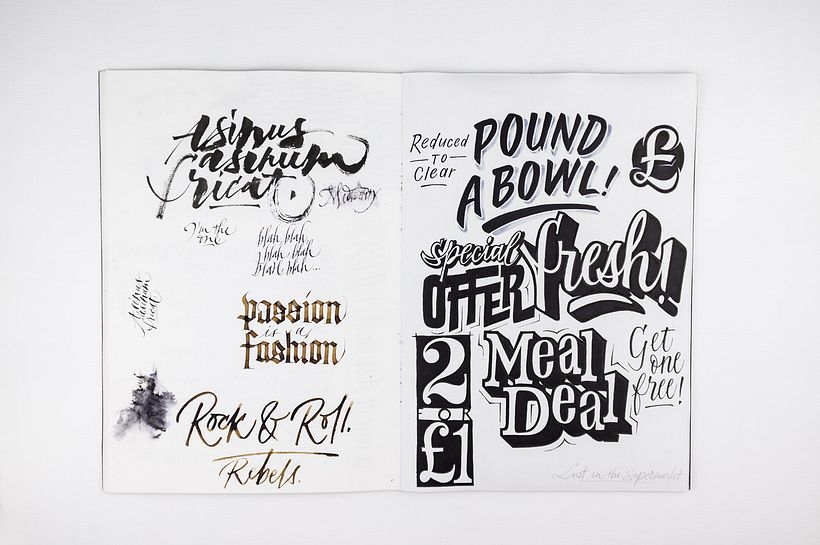 Asinus
asinum
fricat
I'm the
one
blah blah
blah blah
blah blah...
Asinus
asinum
fricat
passion
is a
fashion
Rock & Roll.
Rebels.
Reduced
TO
Clear
POUND
A BOWL!
£
Special
OFFER
fresh!
2
FOR
£1
Meal
Deal
Get
one
free!
Lost in the Supermarket